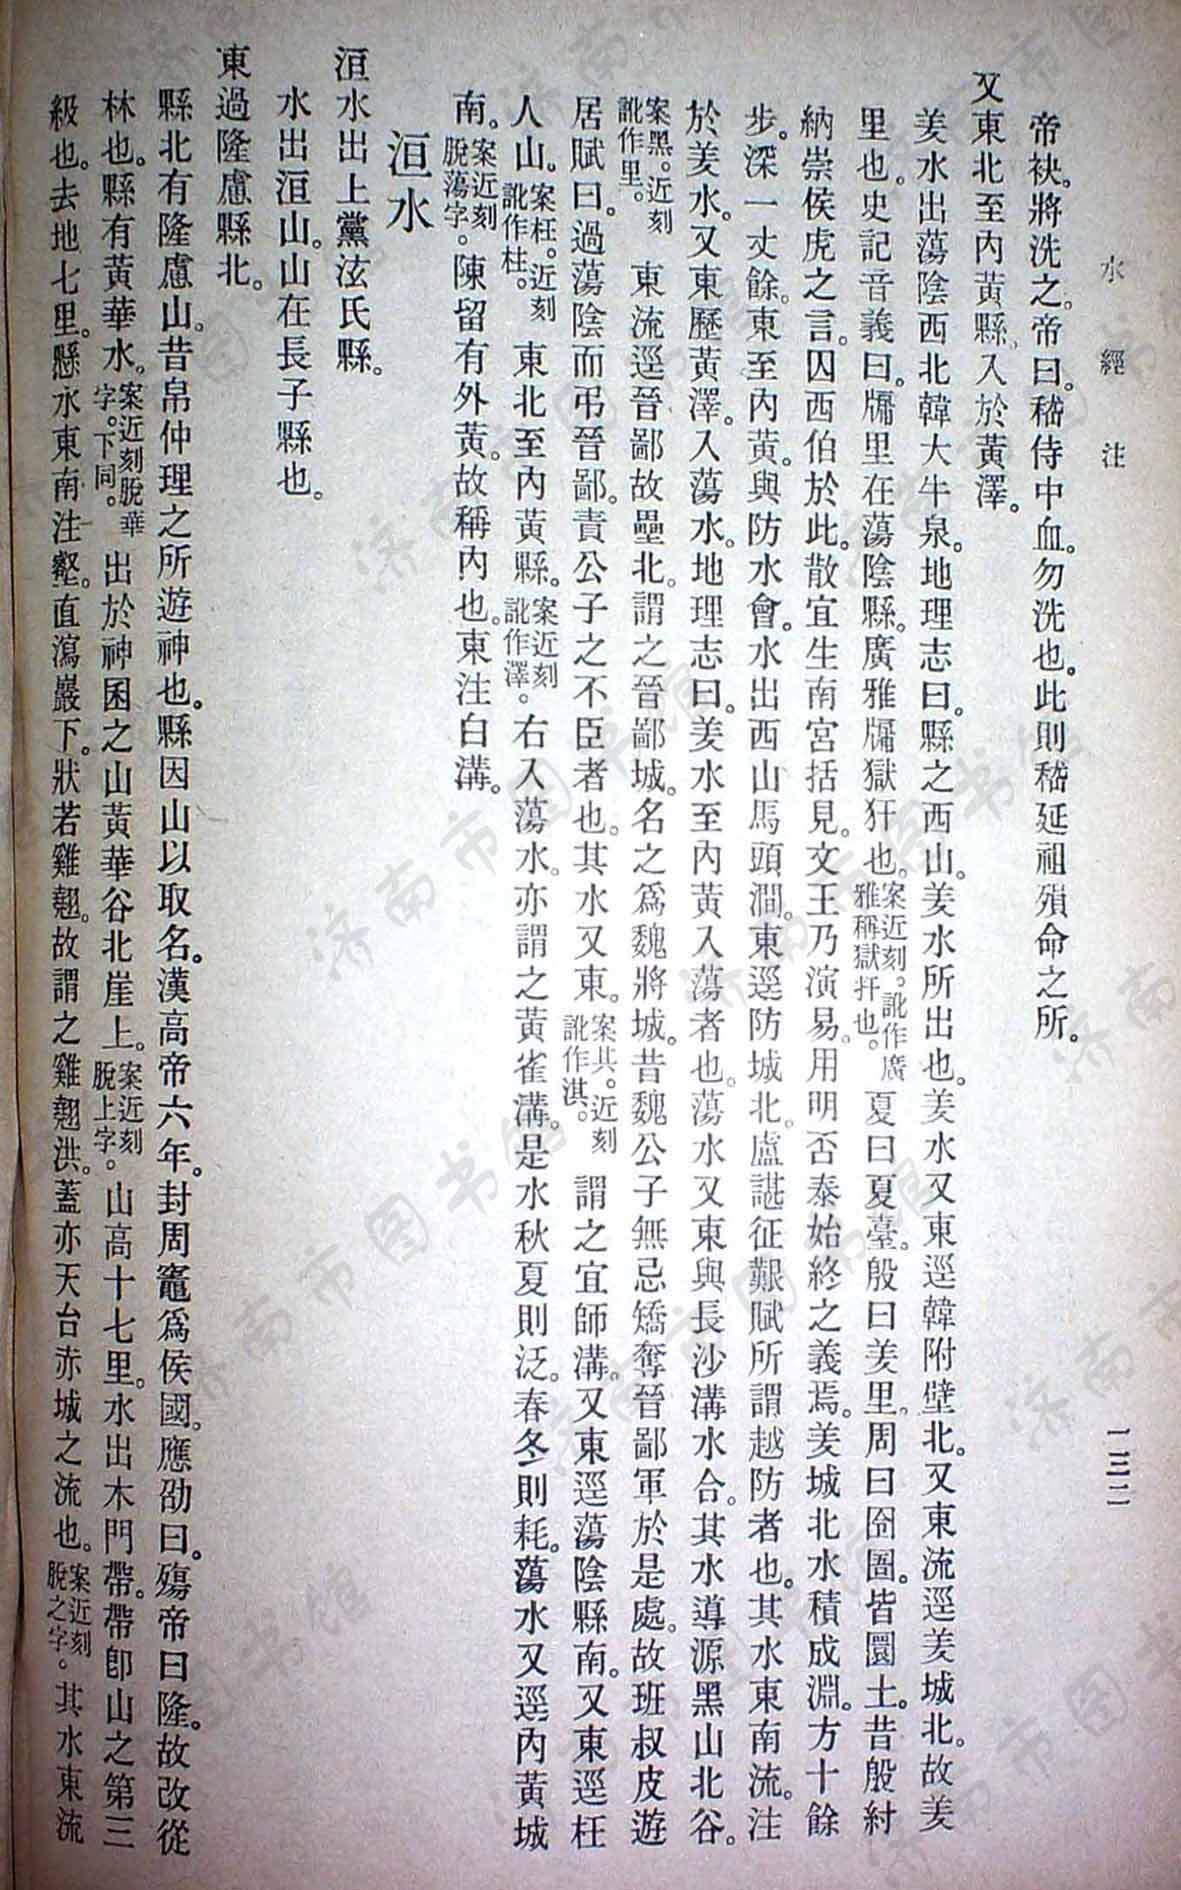 水經注
一三二
帝袂。將洗之。帝曰。嵇侍中血。勿洗也。此則嵇延祖殞命之所。
又東北至內黃縣。入於黃澤。
羑水出蕩陰西北韓大牛泉。地理志曰。縣之西山。羑水所出也。羑水又東逕韓附壁北。又東流逕羑城北。故羑
里也。史記音義曰。牖里在蕩陰縣。廣雅牖獄犴也。案近刻。訛作廣雅稱獄犴也。夏曰夏臺。殷曰羑里。周曰囹圄。皆圜土。昔殷紂
納崇侯虎之言。囚西伯於此。散宜生南宮括見。文王乃演易。用明否泰始終之義焉。羑城北水積成淵。方十餘
步。深一丈餘。東至內黃。與防水會。水出西山馬頭澗。東逕防城北。盧諶征艱賦所謂越防者也。其水東南流。注
於羑水。又東歷黃澤。入蕩水。地理志曰。羑水至內黃入蕩者也。蕩水又東與長沙溝水合。其水導源黑山北谷。
案黑。近刻訛作里。東流逕晉鄙故壘北。謂之晉鄙城。名之爲魏將城。昔魏公子無忌矯奪晉鄙軍於是處。故班叔皮遊
居賦曰。過蕩陰而弔晉鄙。責公子之不臣者也。其水又東。案其。近刻訛作淇。謂之宜師溝。又東逕蕩陰縣南。又東逕枉
人山。案枉。近刻訛作柱。東北至內黃縣。案近刻訛作澤。右入蕩水。亦謂之黃雀溝。是水秋夏則泛。春冬則耗。蕩水又逕內黃城
南。案近刻脫蕩字。陳留有外黃。故稱內也。東注白溝。
洹水
洹水出上黨泫氏縣。
水出洹山。山在長子縣也。
東過隆慮縣北。
縣北有隆慮山。昔帛仲理之所遊神也。縣因山以取名。漢高帝六年。封周竈爲侯國。應劭曰。殤帝曰隆。故改從
林也。縣有黃華水。案近刻脫華字。下同。出於神囷之山黃華谷北崖上。案近刻脫上字。山高十七里。水出木門帶。帶卽山之第三
級也。去地七里。懸水東南注壑。直瀉巖下。狀若雞翹。故謂之雞翹洪。蓋亦天台赤城之流也。案近刻脫之字。其水東流